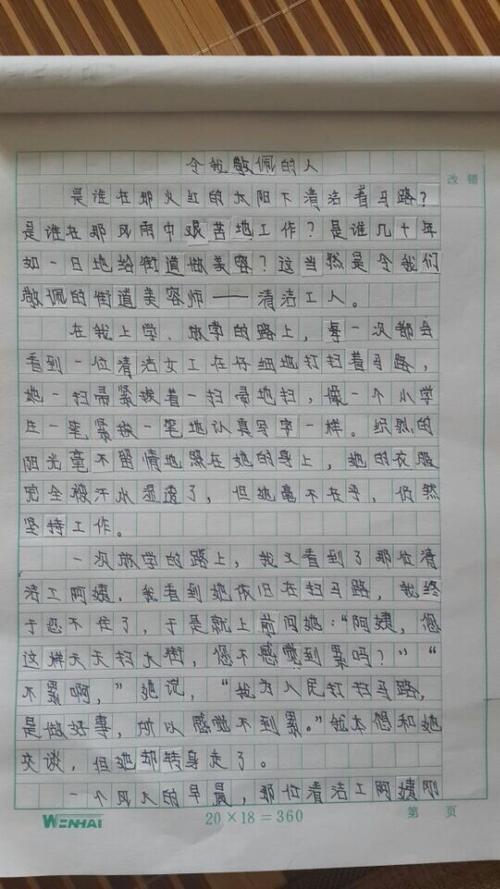 令我敬佩的人
改错
是谁在那火红的太阳下清洁着马路?
是谁在那风雨中艰苦地工作?是谁几十年
如一日地给街道做美容?这当然是令我们
敬佩的街道美容师——清洁工人。
在我上学、放学的路上,每一次都会
看到一位清洁女工在仔细地打扫着马路,
她一扫帚紧挨着一扫帚地扫,像一个小学
生一笔紧挨一笔地认真写字一样。炽热的
阳光毫不留情地照在她的身上,她的衣服
完全被汗水湿透了,但她毫不在乎,仍然
坚持工作。
一次放学的路上,我又看到了那位清
洁工阿姨,我看到她依旧在扫马路,我终
于忍不住了,于是就上前问她:“阿姨,您
这样天天扫大街,您不感觉到累吗?”“
不累啊,”她说,“我为人民打扫马路,
是做好事,所以感觉不到累。”我本想和她
交谈,但她却转身走了。
一个风大的早晨,那位清洁工阿姨刚
WENHAI
20×18=360
第 页